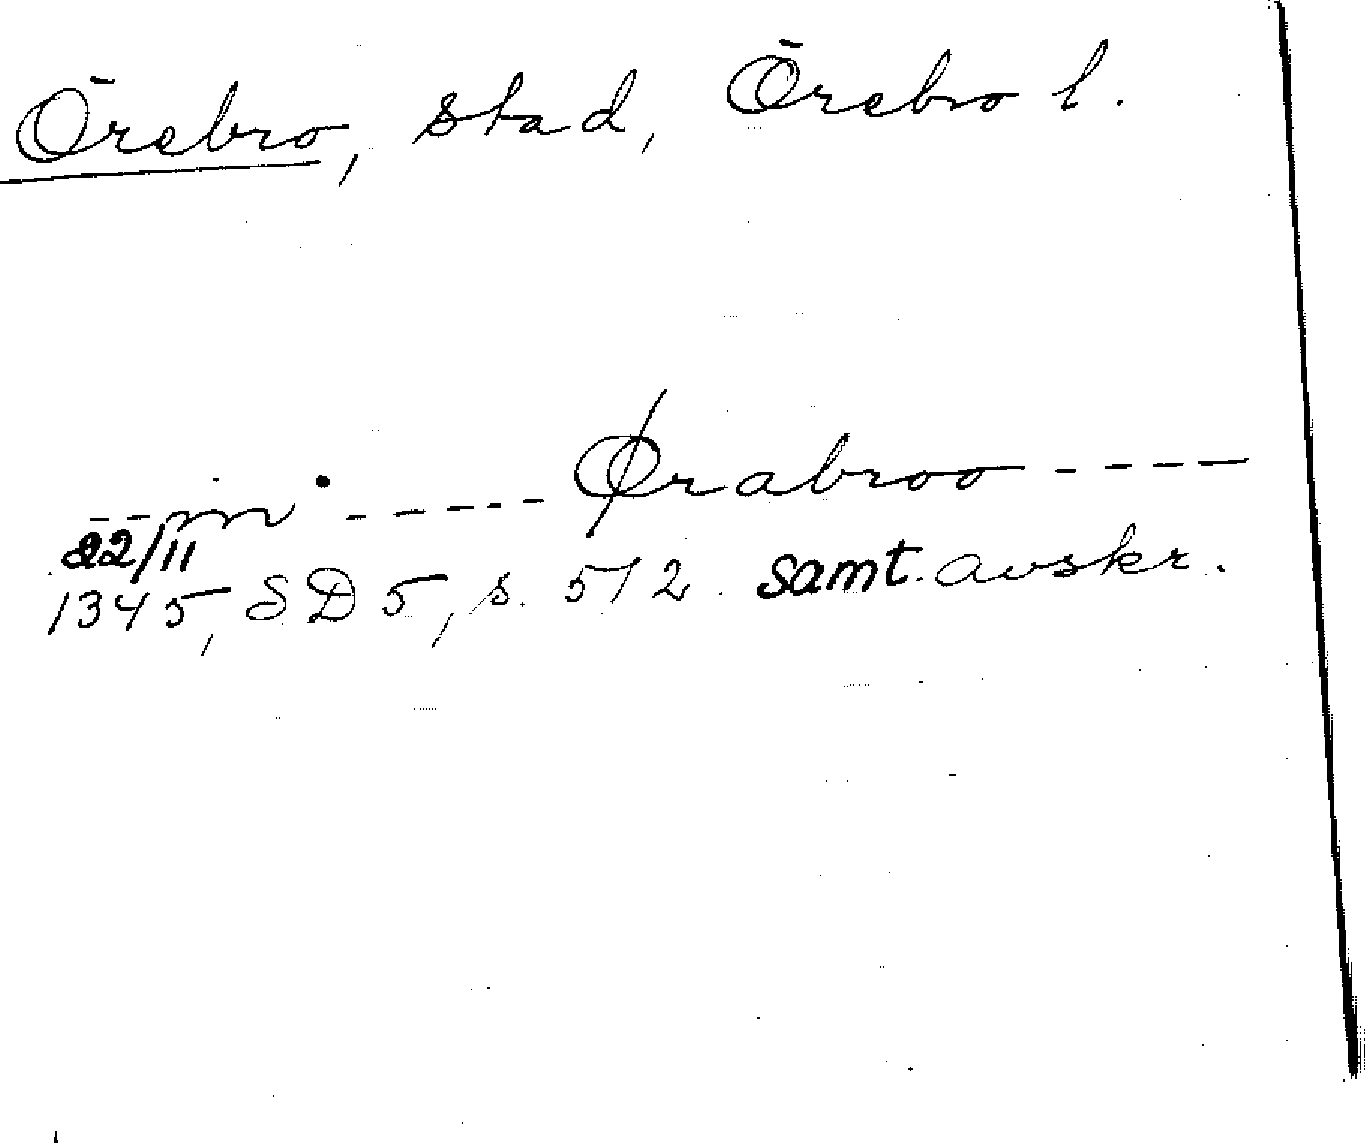 Örebro, stad, Örebro l.
-- m ----- Ørabroo ----
22/11
1345, SD 5, s. 512. samt. avskr.